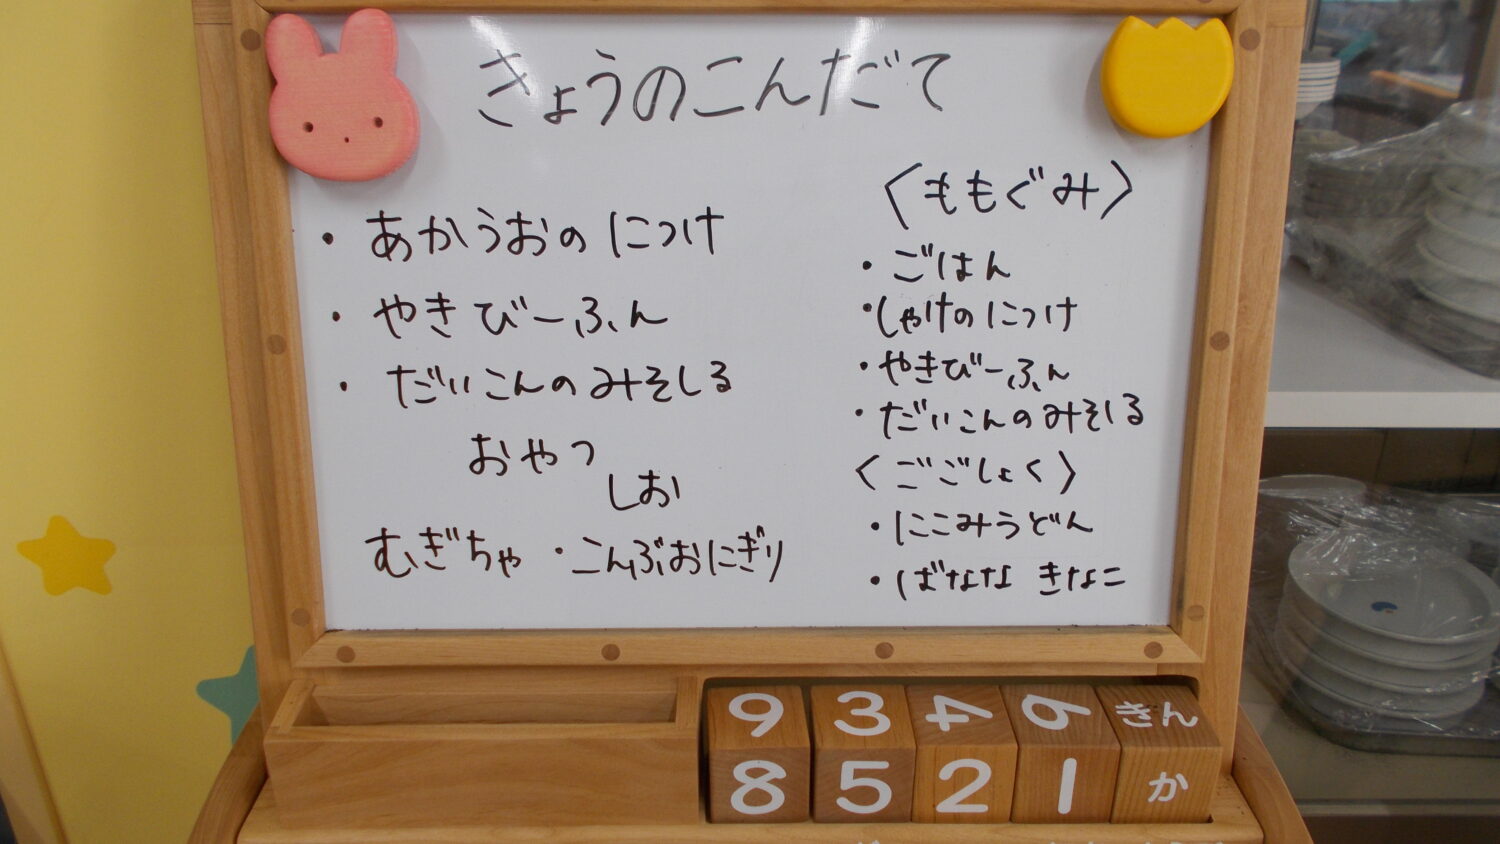 きょうのこんだて
・あかうおのにつけ
・やきびーふん
・だいこんのみそしる
おやつ
しお
むぎちゃ・こんぶおにぎり
〈ももぐみ〉
・ごはん
・しゃけのにつけ
・やきびーふん
・だいこんのみそしる
〈ごごしょく〉
・にこみうどん
・ばなな きなこ
9 3 4 6 きん
8 5 2 1 か